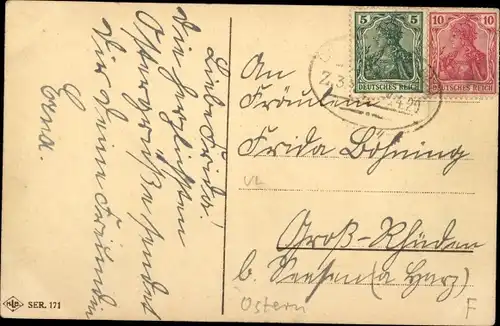 Liebe Frida!
Die herzlichsten
Ostergrüße sendet
Dir Deine Freundin
Erna.
5 5
DEUTSCHES REICH
10 10
DEUTSCHES REICH
An
Fräulein
Frida Böhning
Groß-Rhüden
b. Seesen (a Harz)
Ostern
F
SER. 171